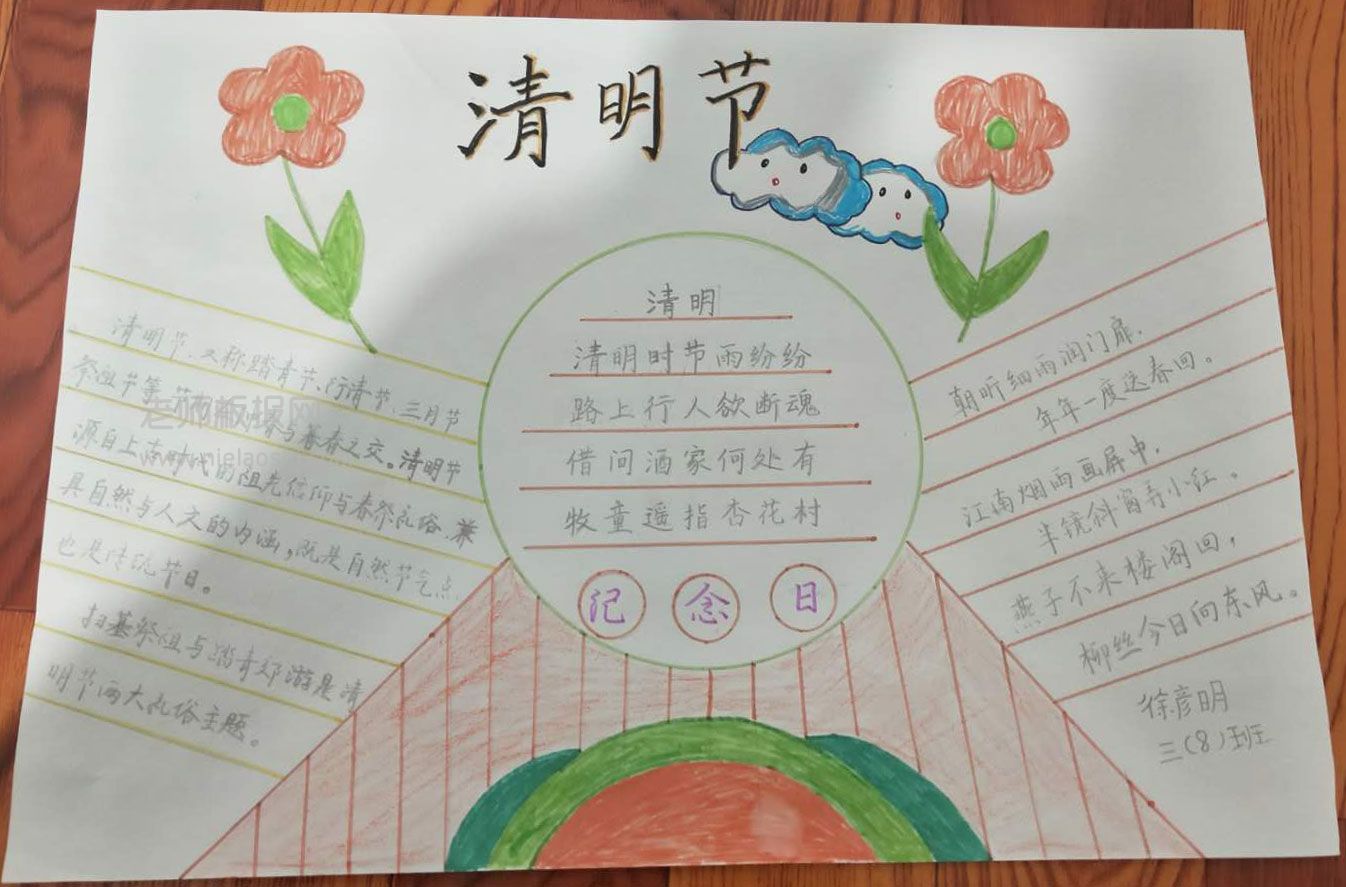 清明节
清明节、又称踏青节、行清节、三月节
祭祖节等节
与暮春之交。清明节
源自上古时代的祖先信仰与春祭礼俗、兼
具自然与人文的内涵，既是自然节气点
也是传统节日。
扫墓祭祖与踏青郊游是清
明节两大礼俗主题。
清明
清明时节雨纷纷
路上行人欲断魂
借问酒家何处有
牧童遥指杏花村
记 念 日
朝听细雨润门扉，
年年一度送春回。
江南烟雨画屏中，
半镜斜窗弄小红。
燕子不来楼阁回，
柳丝今日向东风。
徐彦明
三（8）班
老师板报网